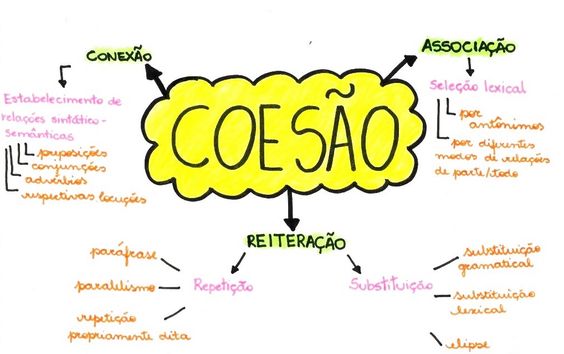 COESÃO
CONEXÃO
Estabelecimento de
relações sintático-
semânticas
preposições
conjunções
advérbios
respectivas locuções
ASSOCIAÇÃO
Seleção lexical
por
antônimos
por diferentes
modos de relações
de parte/todo
REITERAÇÃO
Repetição
paráfrase
paralelismo
repetição
propriamente dita
Substituição
substituição
gramatical
substituição
lexical
elipse